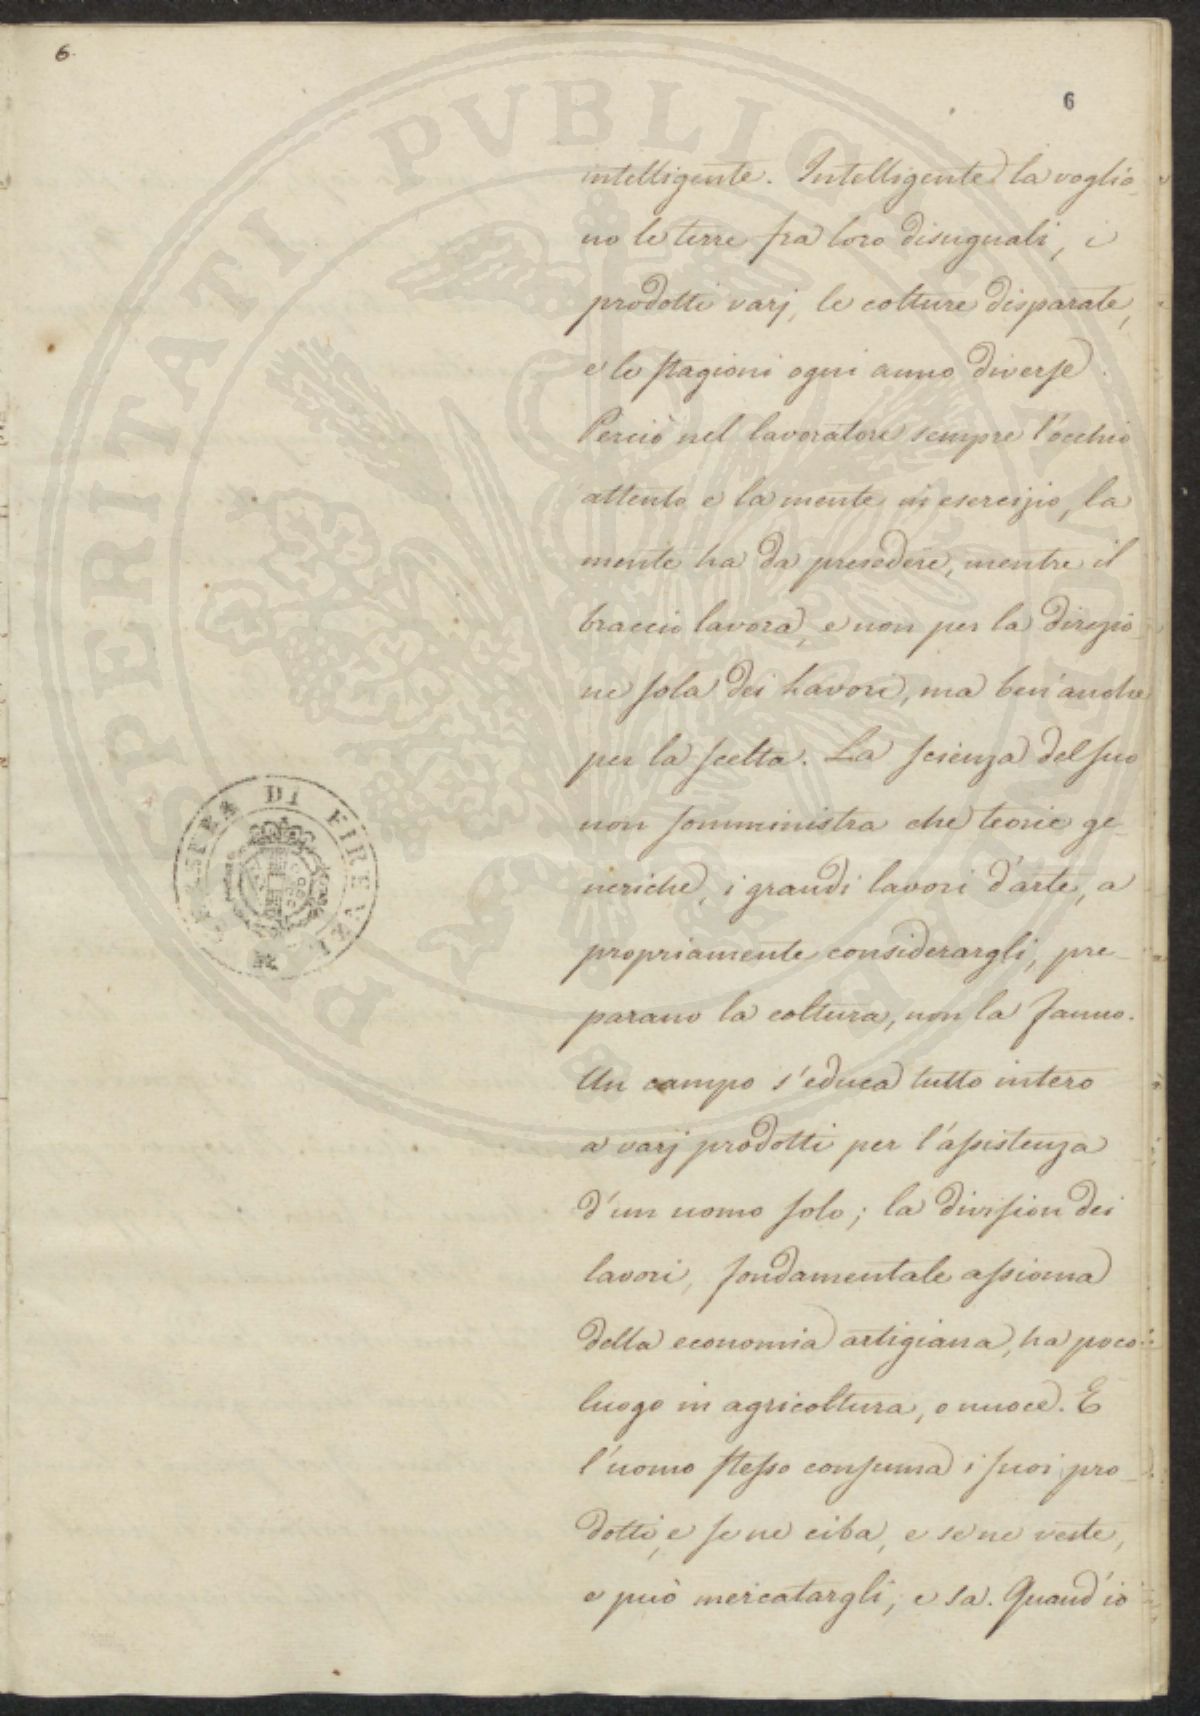 6.
6
intelligente. Intelligente la voglio-
no le terre fra loro disuguali, i
prodotti varj, le colture disparate,
e le stagioni ogni anno diverse.
Perciò nel lavoratore sempre l'occhio
attento e la mente in esercizio, la
mente ha da presedere, mentre il
braccio lavora, e non per la direzio-
ne sola dei lavori, ma ben'anche
per la scelta. La scienza del suo
non somministra che teorie ge-
neriche, i grandi lavori d'arte, a
propriamente considerargli, pre-
parano la coltura, non la fanno.
Un campo s'educa tutto intero
a varj prodotti per l'assistenza
d'un uomo solo; la division dei
lavori, fondamentale assioma
della economia artigiana, ha poco
luogo in agricoltura, o nuoce. E
l'uomo stesso consuma i suoi pro-
dotti, e se ne ciba, e se ne veste,
e può mercatargli, e sa. Quand'io
PROSPERITATI PVBLICAE
DI FIRE